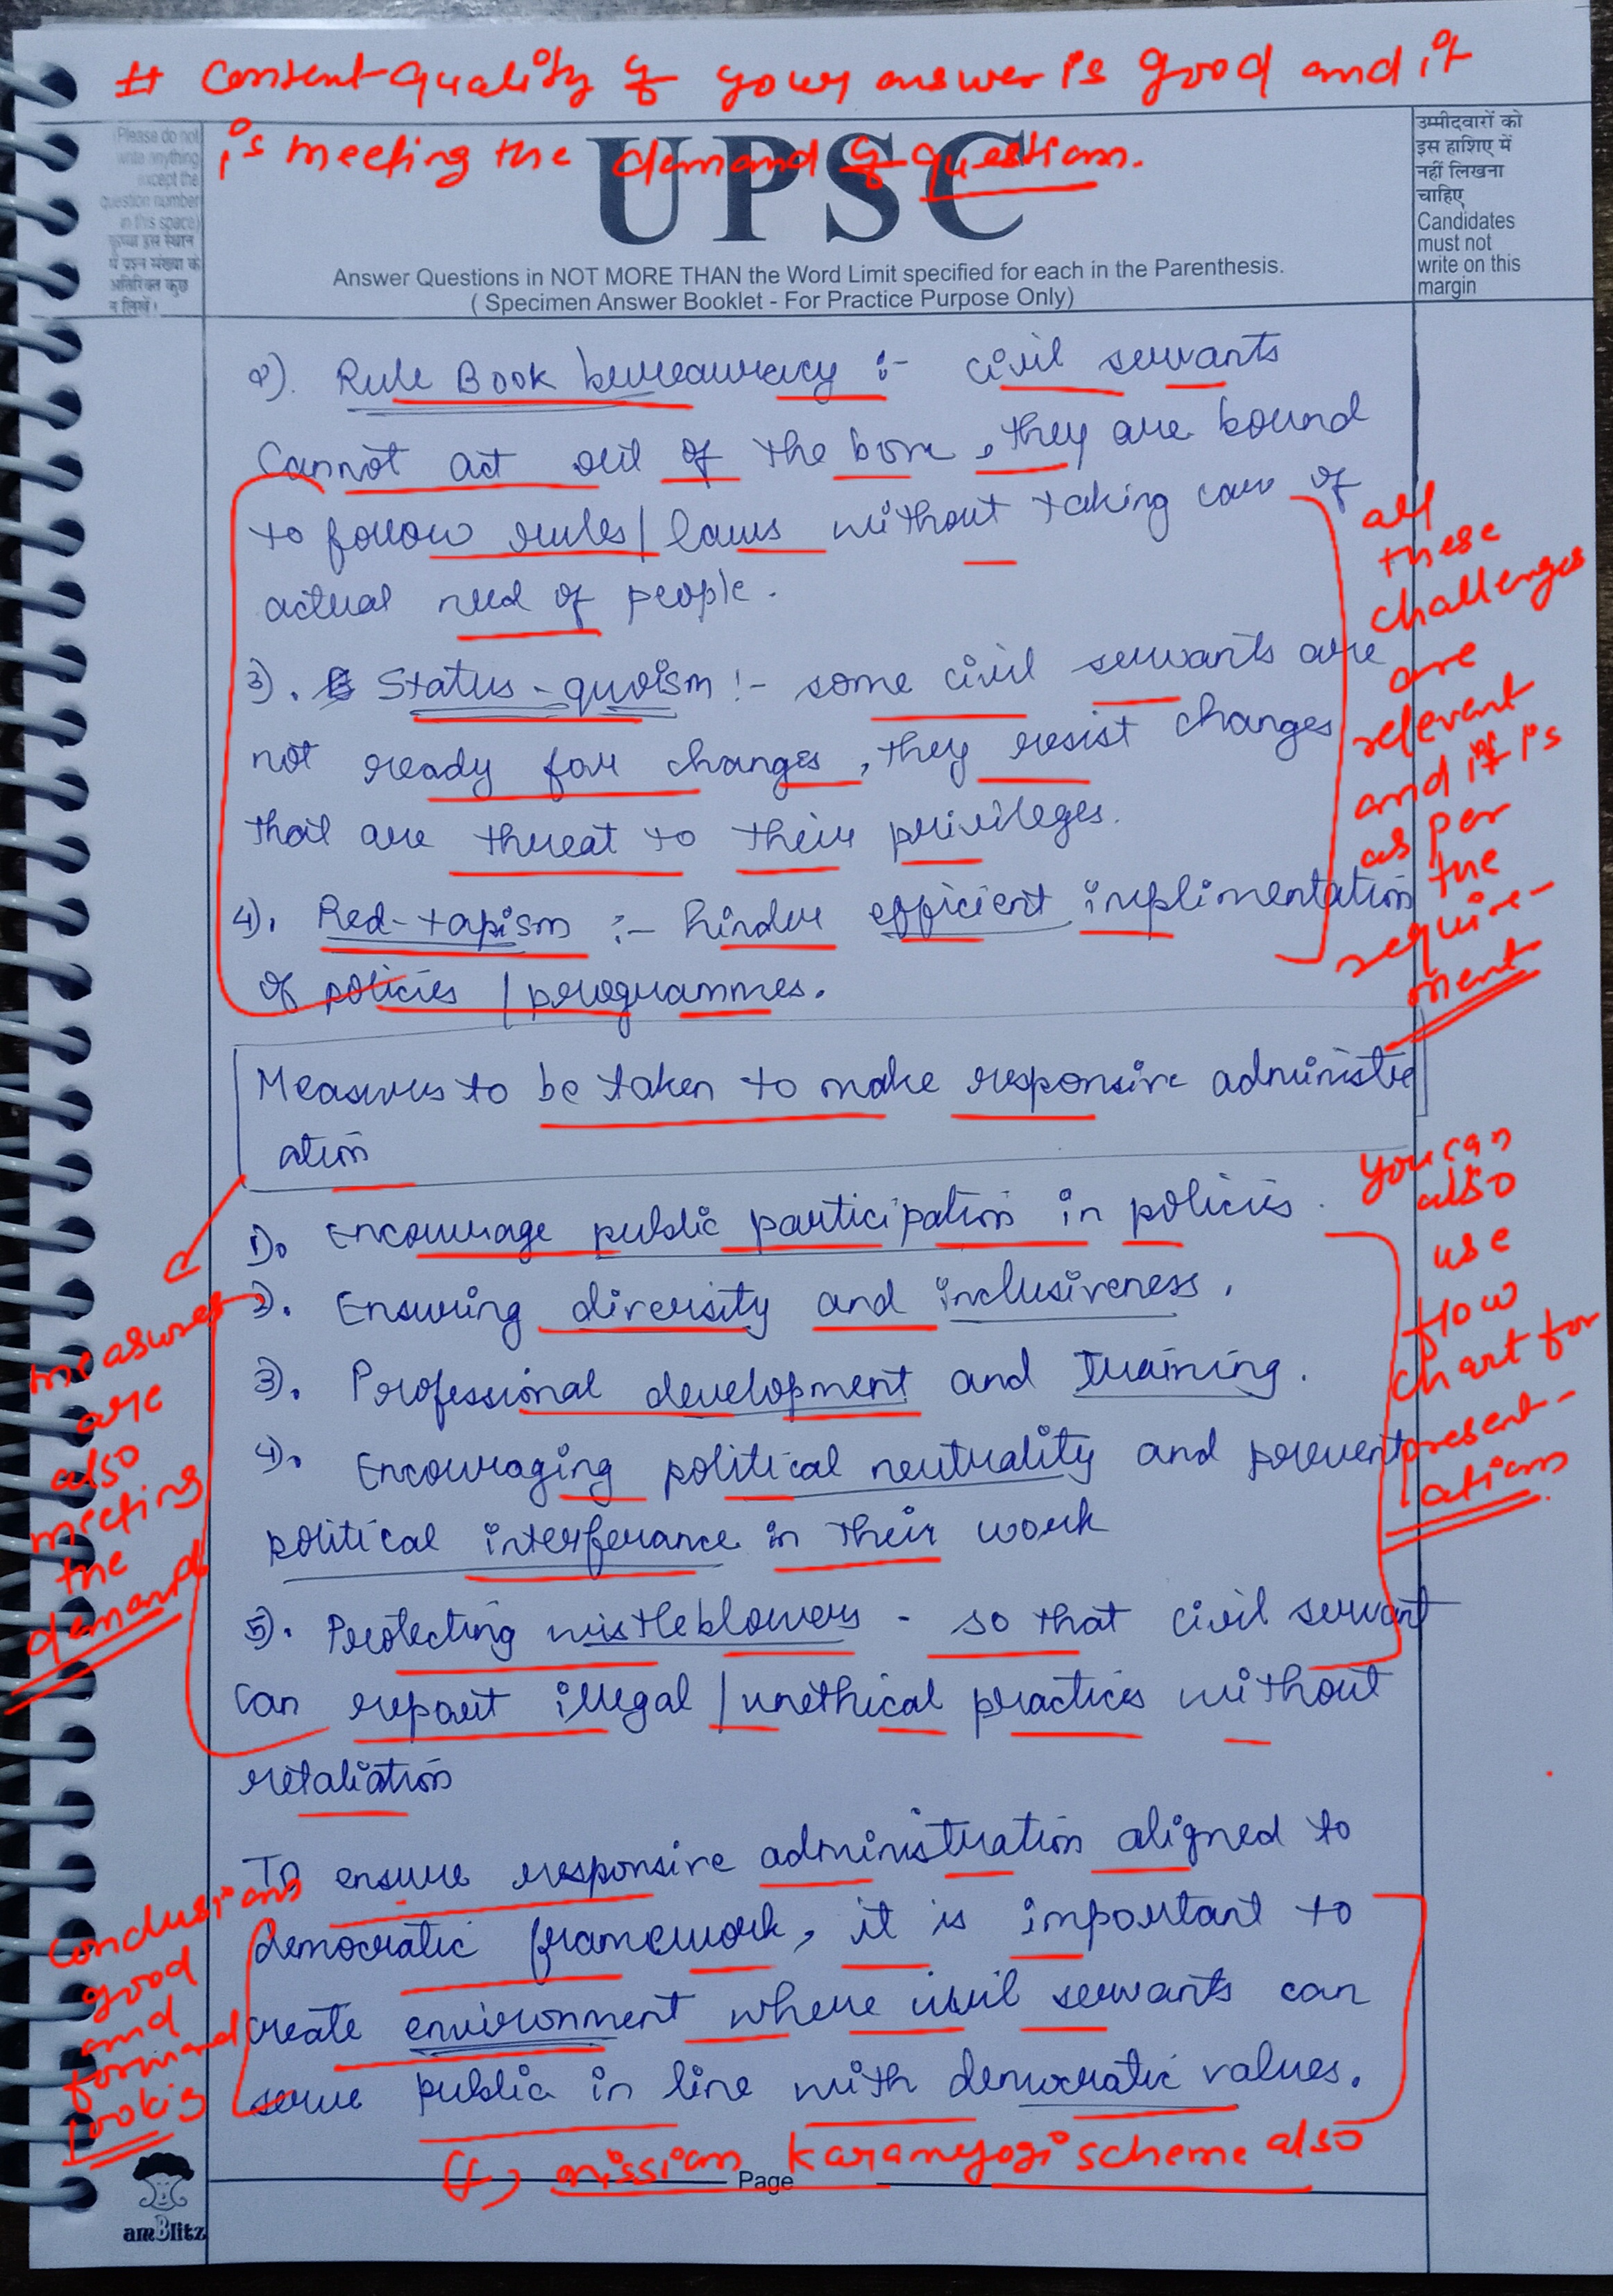 # Content quality of your answer is good and it
is meeting the demand of question.
(Please do not
write anything
except the
question number
in this space)
कृपया इस स्थान
में प्रश्न संख्या के
अतिरिक्त कुछ
न लिखें।
UPSC
Answer Questions in NOT MORE THAN the Word Limit specified for each in the Parenthesis.
( Specimen Answer Booklet - For Practice Purpose Only)
उम्मीदवारों को
इस हाशिए में
नहीं लिखना
चाहिए
Candidates
must not
write on this
margin
2). Rule Book bureaucracy :- civil servants
Cannot act out of the box, they are bound
to follow rules/laws without taking care of
actual need of people.
3). Status-quoism :- some civil servants are
not ready for changes, they resist changes
that are threat to their privileges.
4). Red-tapism :- hinder efficient implimentation
of policies / programmes.
all
these
challenges
are
relevent
and it is
as per
the
require-
ment
Measures to be taken to make responsive administr
ation
1). Encourage public participation in policies.
2). Ensuring diversity and inclusiveness.
3). Professional development and training.
4). Encouraging political neutrality and prevent
political interferance in their work
5). Protecting wistleblowers - so that civil servant
can report illegal / unethical practices without
retaliation
measures
are
also
meeting
the
demand
you can
also
use
flow
chart for
present-
ations
To ensure responsive administration aligned to
democratic framework, it is important to
create environment where civil servants can
serve public in line with democratic values.
conclusion
good
and
forward
looking
(+) mission karamyogi scheme also
Page
amBlitz